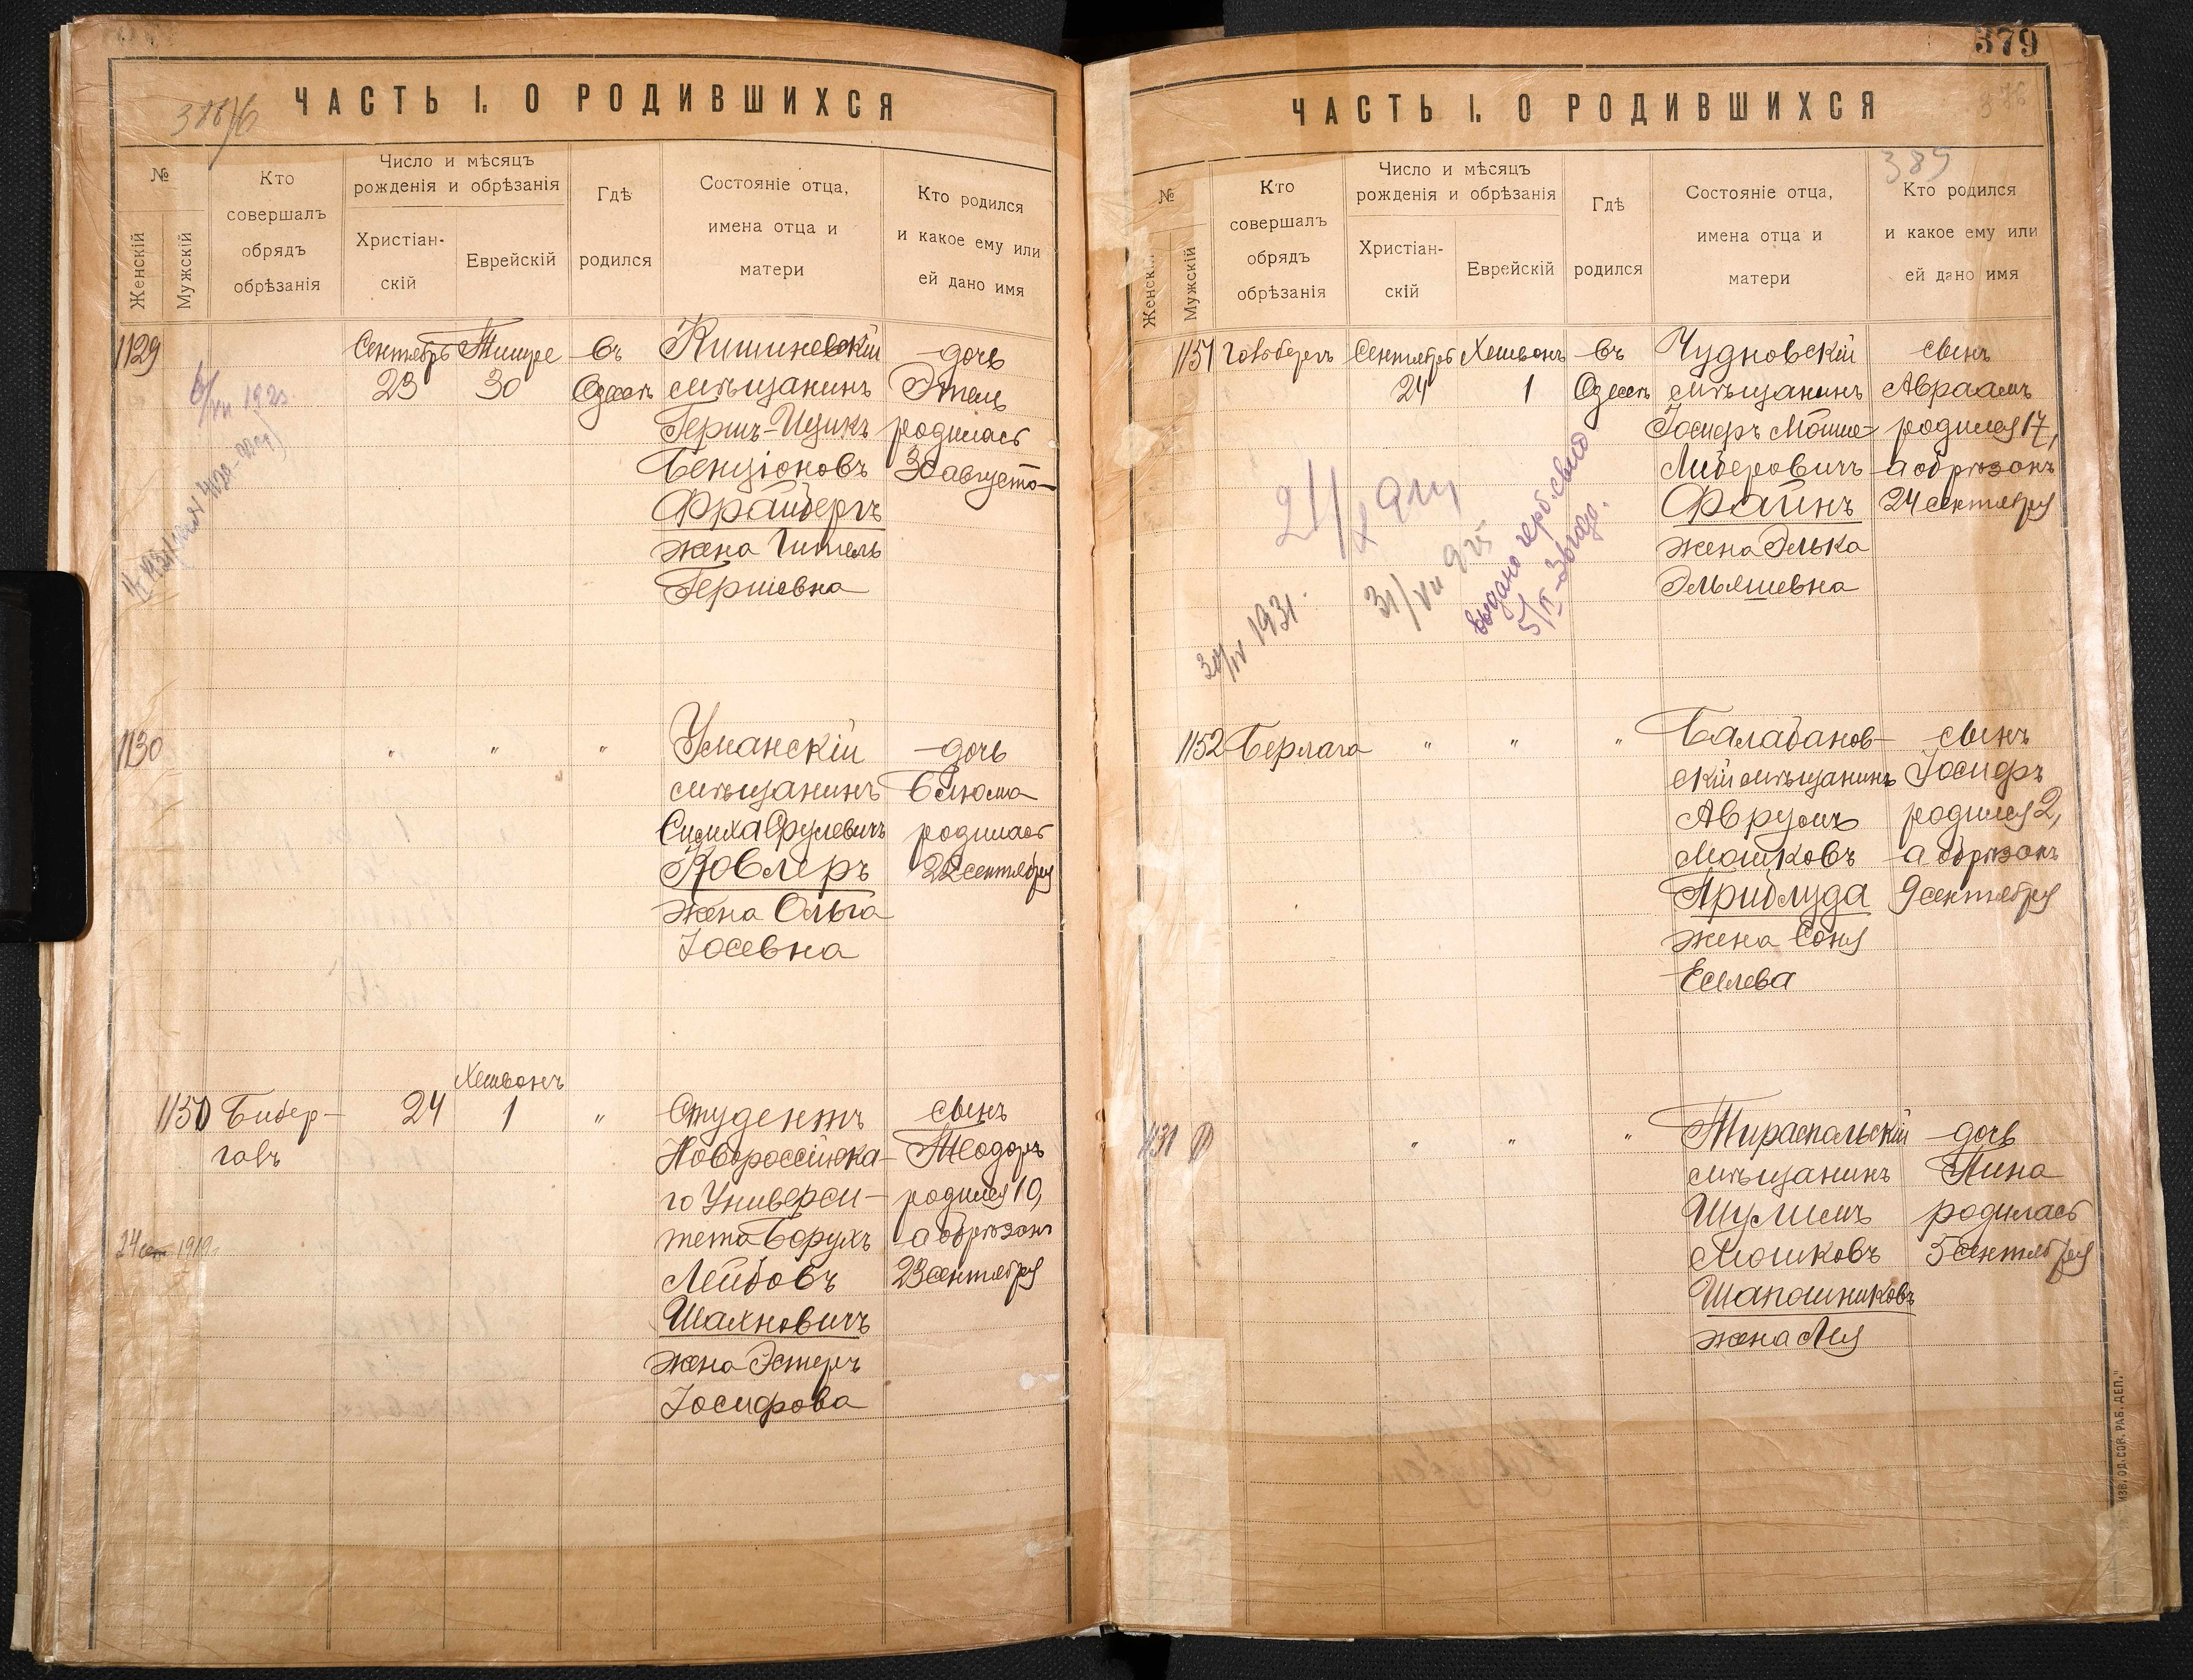 ЧАСТЬ I. О РОДИВШИХСЯ
№
Женскій
Мужскій
Кто
совершалъ
обрядъ
обрѣзанія
Число и мѣсяцъ
рожденія и обрѣзанія
Христіан-
скій
Еврейскій
Гдѣ
родился
Состояніе отца,
имена отца и
матери
Кто родился
и какое ему или
ей дано имя
1129
Сентябрь
23
Тишре
30
въ
Одессѣ
Кишиневскій
мѣщанинъ
Гершъ-Ицикъ
Бенціоновъ
Фрайбергъ
жена Гитель
Гершевна
дочь
Этель
родилась
30 августа
1130
" " "
Уманскій
мѣщанинъ
Симха Срулевичъ
Ковлеръ
жена Ольга
Іосевна
дочь
Блюма
родилась
22 сентября
1150
Бибер-
галъ
24
Хешванъ
1
"
Студентъ
Новороссійска-
го Универси-
тета Борухъ
Лейбовъ
Шахновичъ
жена Эстеръ
Іосифова
сынъ
Теодоръ
родился 10,
а обрѣзанъ
23 сентября
24 1919
379
ЧАСТЬ I. О РОДИВШИХСЯ
376
389
№
Женскі
Мужскій
Кто
совершалъ
обрядъ
обрѣзанія
Число и мѣсяцъ
рожденія и обрѣзанія
Христіан-
скій
Еврейскій
Гдѣ
родился
Состояніе отца,
имена отца и
матери
Кто родился
и какое ему или
ей дано имя
1151
Сентябрь
24
Хешванъ
1
въ
Одессѣ
Чудновскій
мѣщанинъ
Іосифъ Мошко-
Либеровичъ
Файнъ
жена Элька
Эльяшевна
сынъ
Авраамъ
родился 17,
а обрѣзанъ
24 сентября
31/VII 925
30/IV 1931.
1152
Берлага
" " "
Балабанов-
скій мѣщанинъ
Аврумъ
Мошковъ
Приблуда
жена Соня
Еселева
сынъ
Іосифъ
родился 2,
а обрѣзанъ
9 сентября
1131
" " "
Тираспольскій
мѣщанинъ
Шулимъ
Мошковъ
Шапошниковъ
жена Лея
дочь
Пина
родилась
5 сентября
ИЗВ. ОД. СОВ. РАБ. ДЕП."